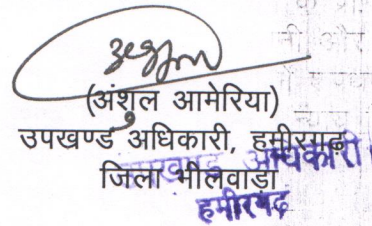 (अंशुल आमेरिया)
उपखण्ड अधिकारी, हमीरगढ़
जिला भीलवाड़ा
उपखण्ड अधिकारी
हमीरगढ़